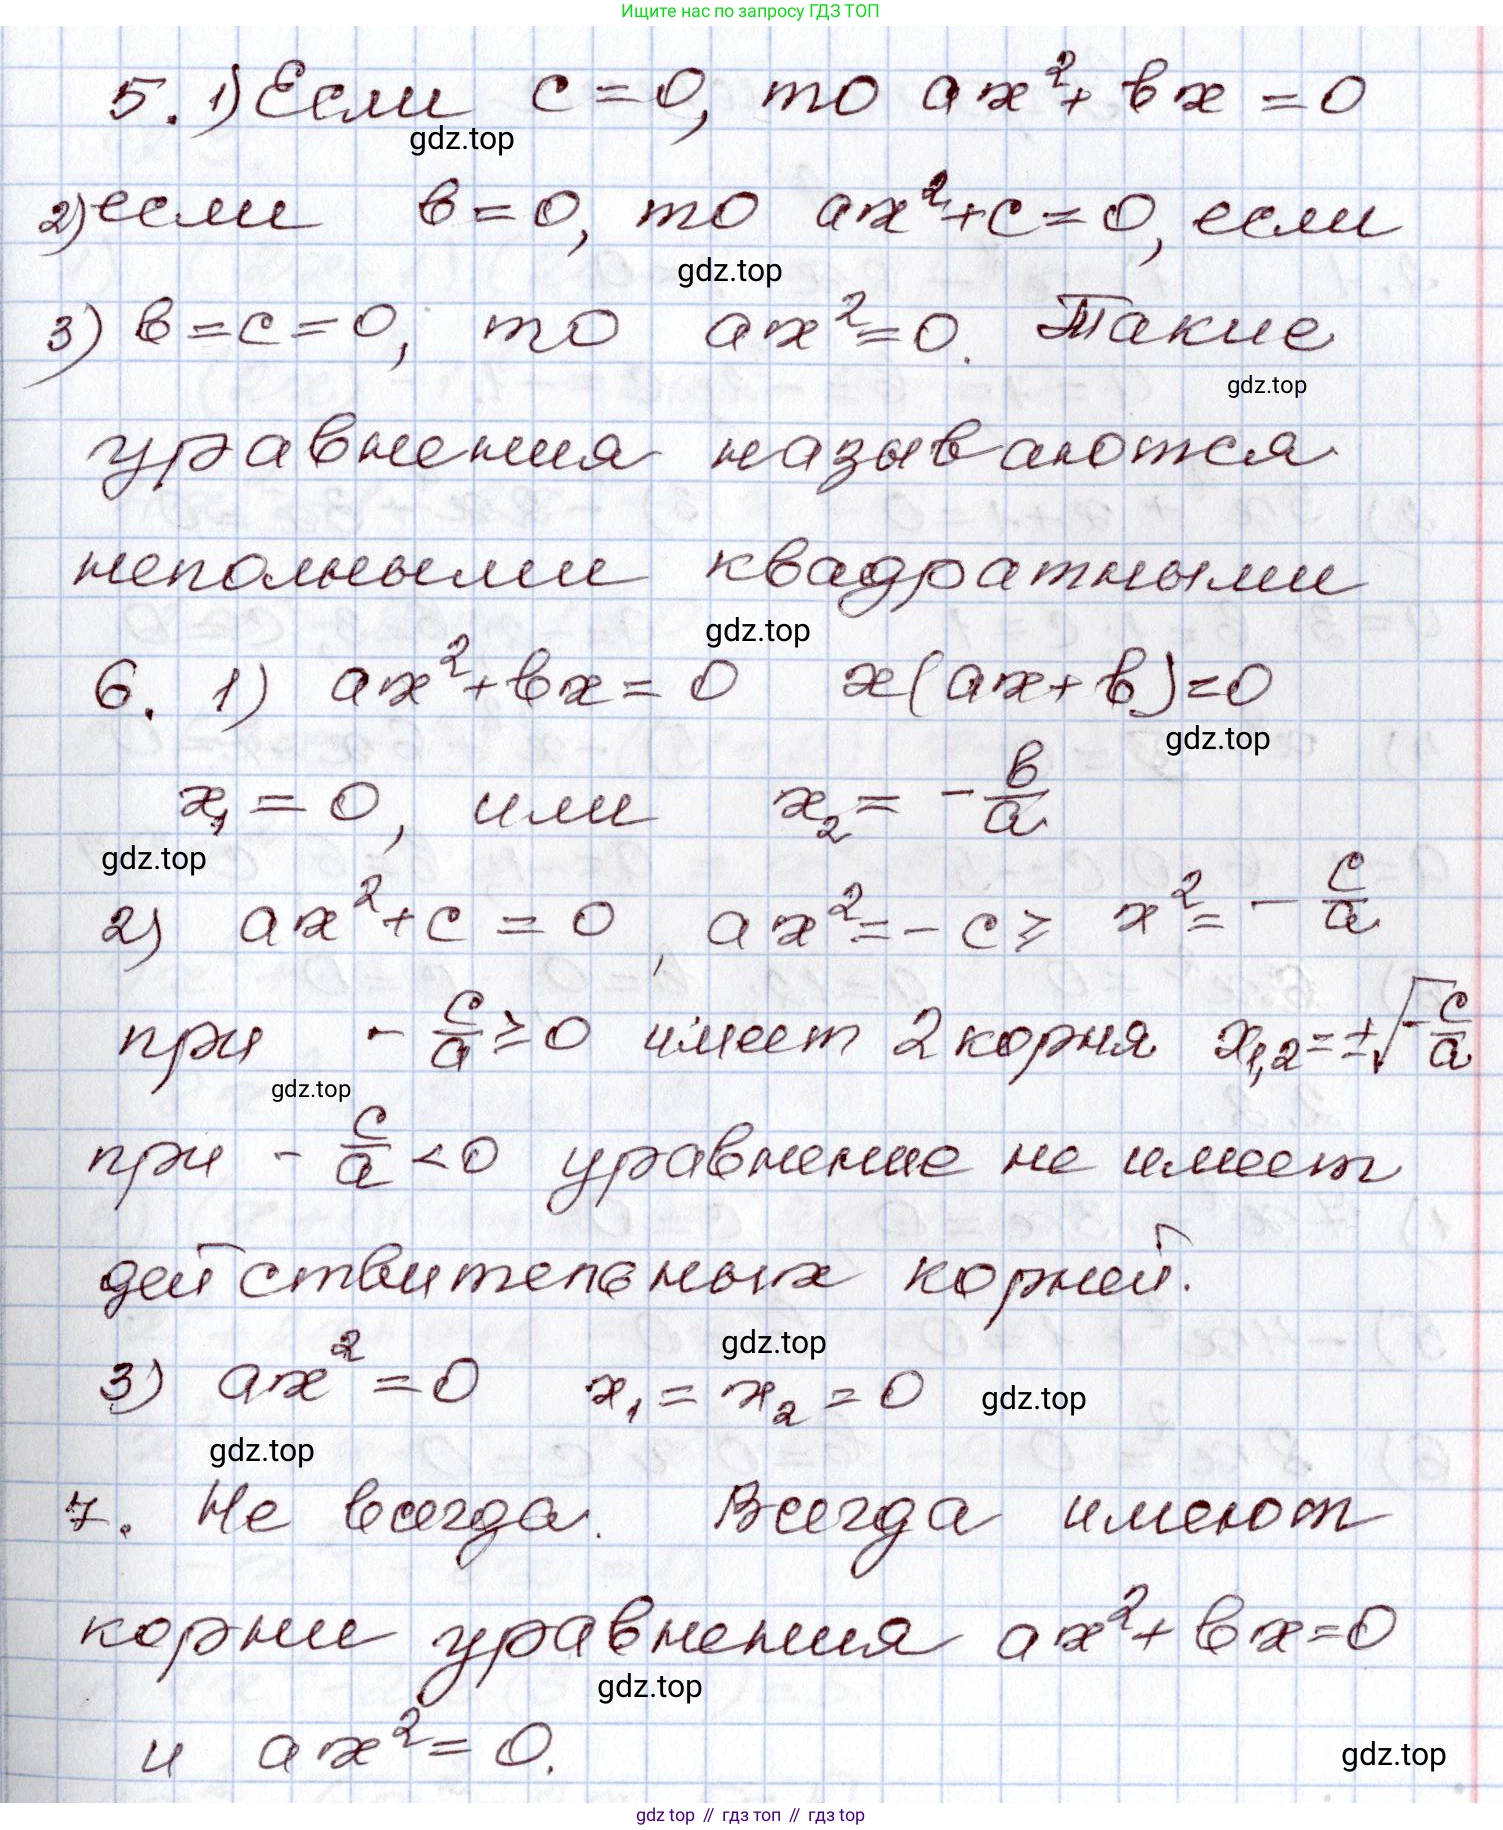 Ищите нас по запросу ГДЗ ТОП
5. 1) Если c = 0, то ax² + bx = 0
gdz.top
2) если b = 0, то ax² + c = 0, если
gdz.top
3) b = c = 0, то ax² = 0. Такие
gdz.top
уравнения называются
неполными квадратными
gdz.top
6. 1) ax² + bx = 0 x(ax + b) = 0
gdz.top
x₁ = 0, или x₂ = - b/a
gdz.top
2) ax² + c = 0, ax² = - c ⩾ x² = - c/a
при - c/a ⩾ 0 имеет 2 корня x₁,₂ = ±√(- c/a)
gdz.top
при - c/a < 0 уравнение не имеет
действительных корней.
gdz.top
3) ax² = 0 x₁ = x₂ = 0 gdz.top
gdz.top
7. Не всегда. Всегда имеют
корни уравнения ax² + bx = 0
gdz.top
и ax² = 0.
gdz.top
gdz top // гдз топ // гдз top